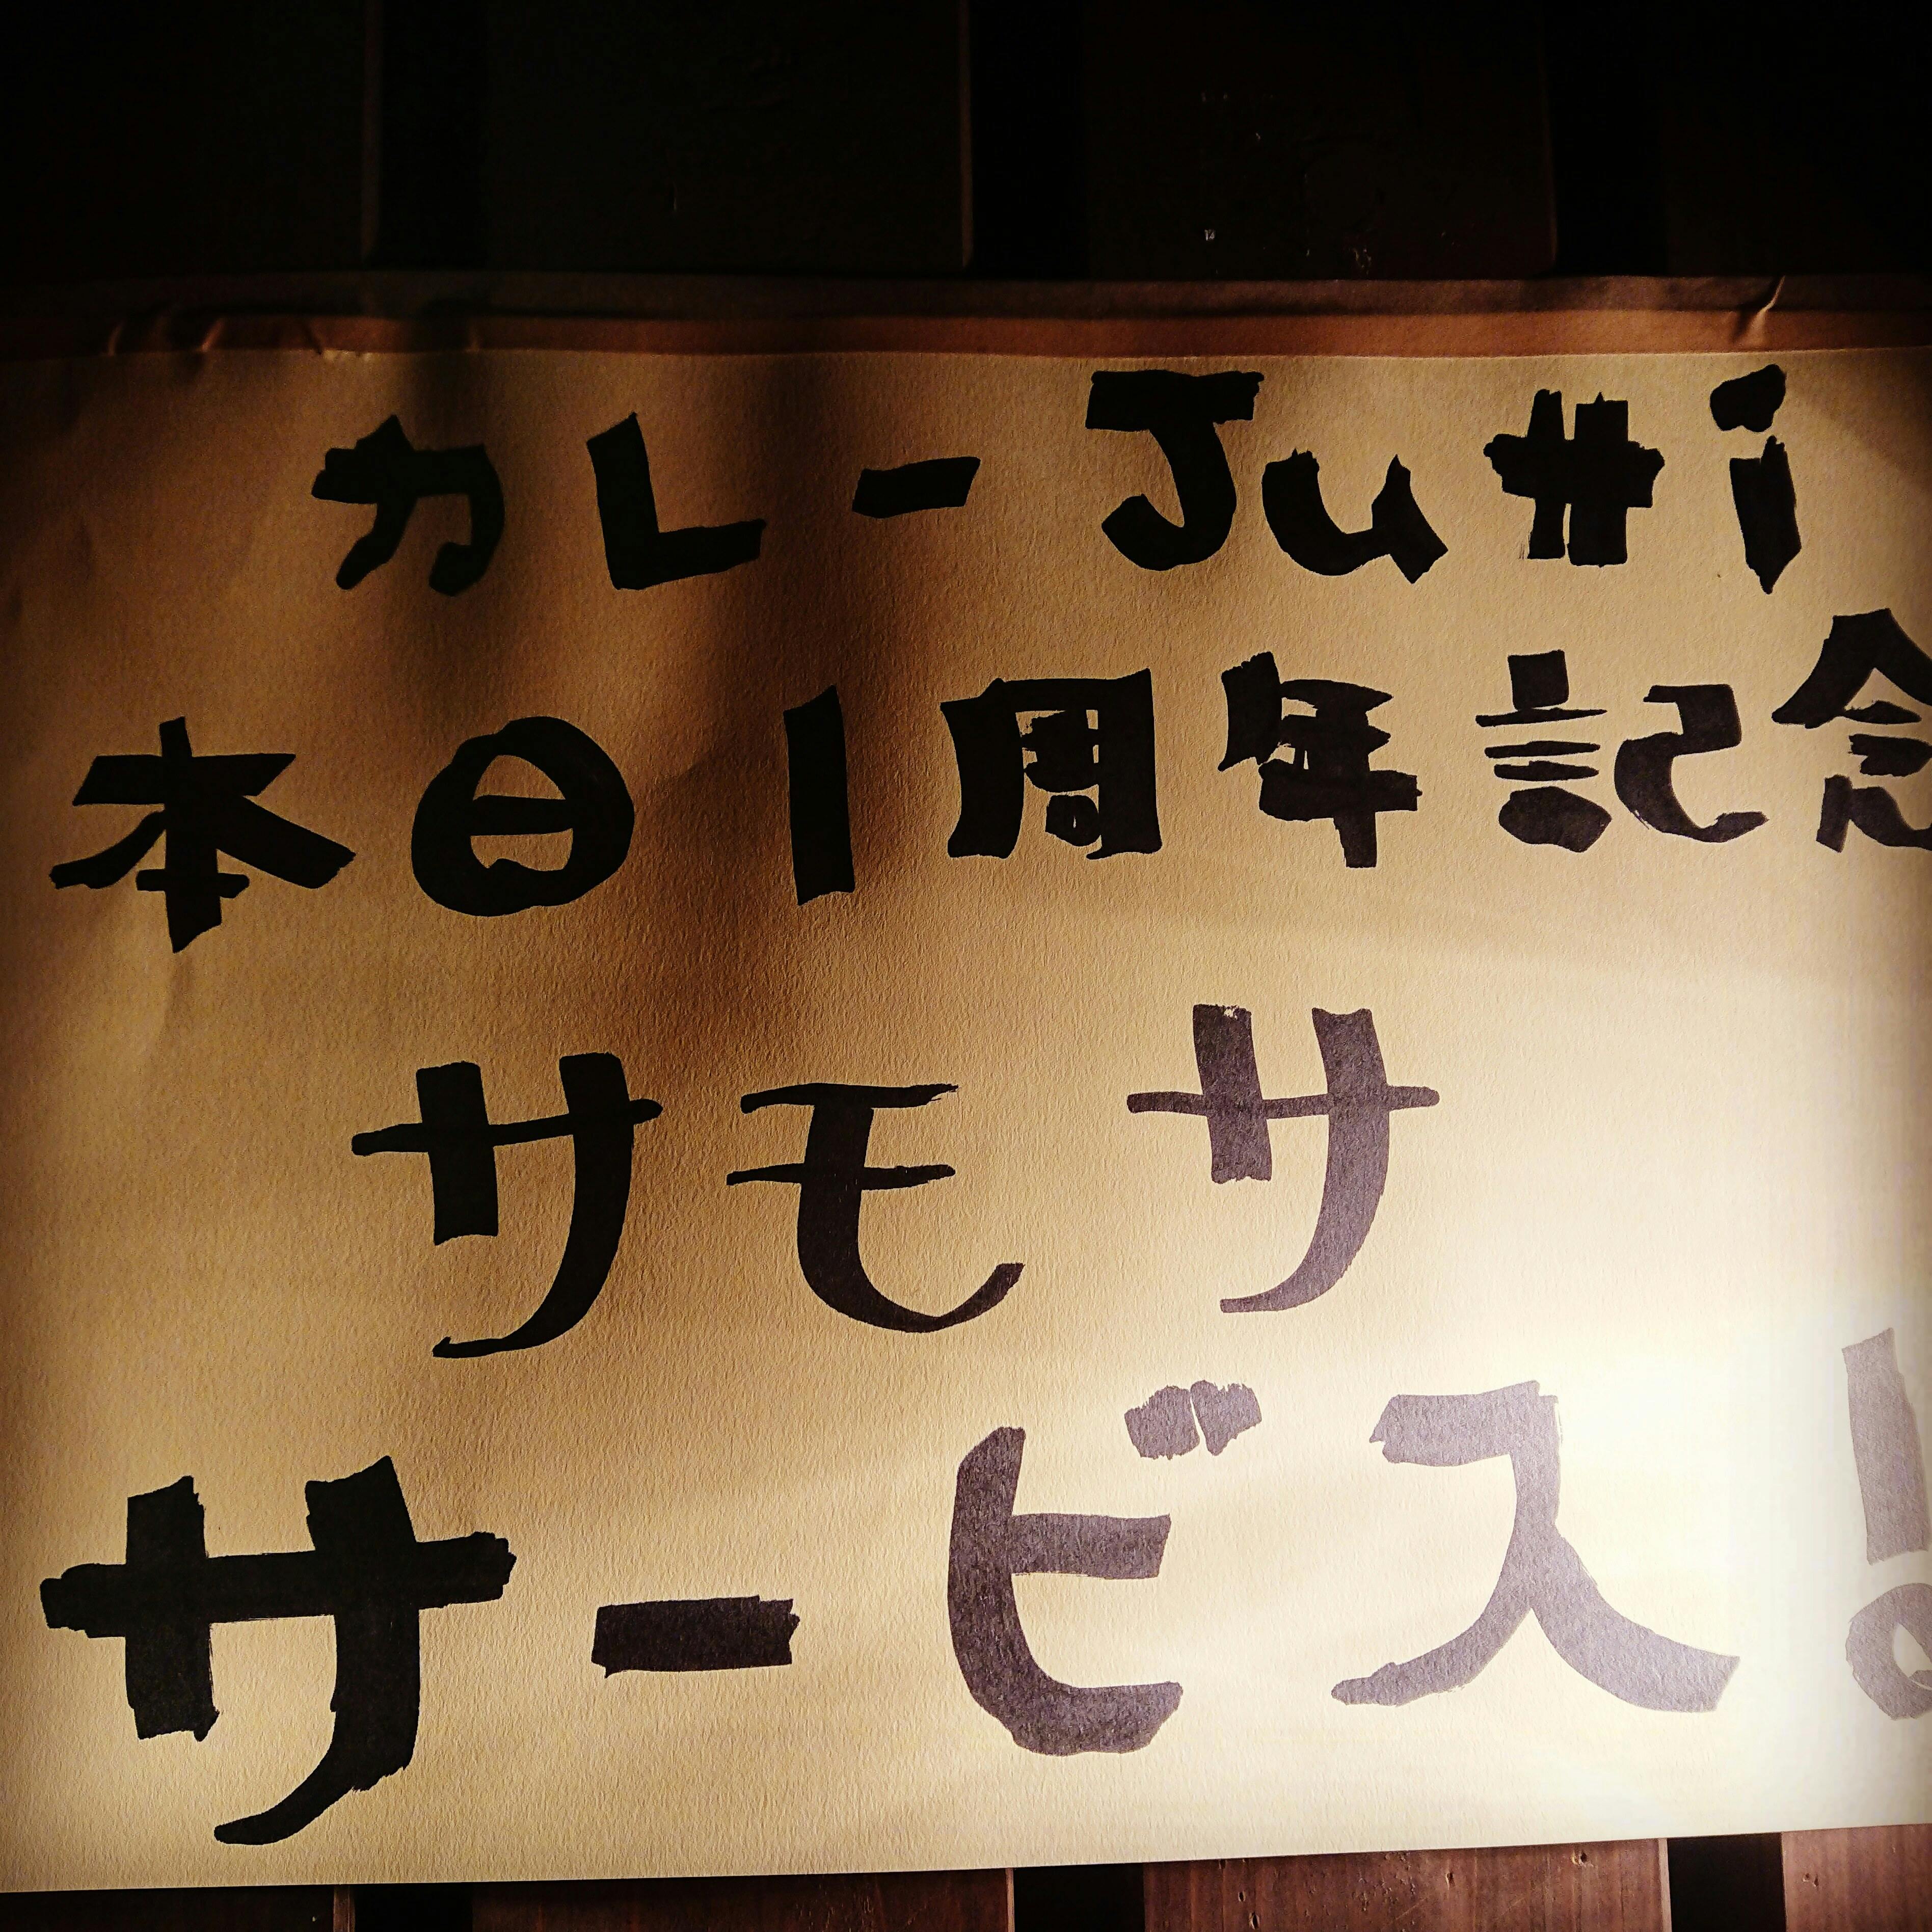 カレー Jutti
本日1周年記念
サモサ
サービス!